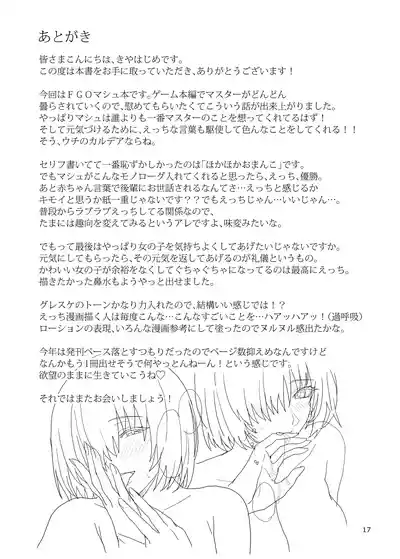 あとがき
皆さまこんにちは、きやはじめです。
この度は本書をお手に取っていただき、ありがとうございます！
今回はＦＧＯマシュ本です。ゲーム本編でマスターがどんどん
曇らされていくので、慰めてもらいたくてこういう話が出来上がりました。
やっぱりマシュは誰よりも一番マスターのことを想ってくれてるはず！
そして元気づけるために、えっちな言葉も駆使して色んなことをしてくれる！！
そう、ウチのカルデアならね。
セリフ書いてて一番恥ずかしかったのは「ほかほかおまんこ」です。
でもマシュがこんなモノローグ入れてくれると思ったら、えっち、優勝。
あと赤ちゃん言葉で後輩にお世話されるなんてさ…えっちと感じるか
キモイと思うか紙一重じゃないです？？でもえっちじゃん…いいじゃん…。
普段からラブラブえっちしてる関係なので、
たまには趣向を変えてみるというアレですよ、味変みたいな。
でもって最後はやっぱり女の子を気持ちよくしてあげたいじゃないですか。
元気にしてもらったら、その元気を返してあげるのが礼儀というもの。
かわいい女の子が余裕をなくしてぐちゃぐちゃになってるのは最高にえっち。
描きたかった鼻水もようやっと出せました。
グレスケのトーンかなり力入れたので、結構いい感じでは！？
えっち漫画描く人は毎度こんな…こんなすごいことを…ハアッハアッ！（過呼吸）
ローションの表現、いろんな漫画参考にして塗ったのでヌルヌル感出たかな。
今年は発刊ペース落とすつもりだったのでページ数抑えめなんですけど
なんかもう１冊出せそうで何やっとんねーん！という感じです。
欲望のままに生きていこうね♡
それではまたお会いしましょう！
17